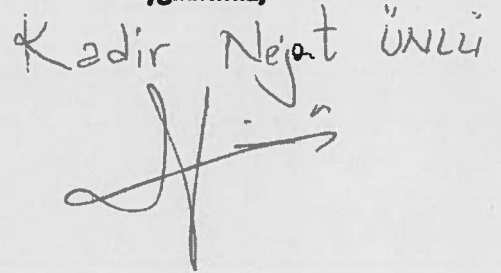 Kadir Nejat ÜNLÜ